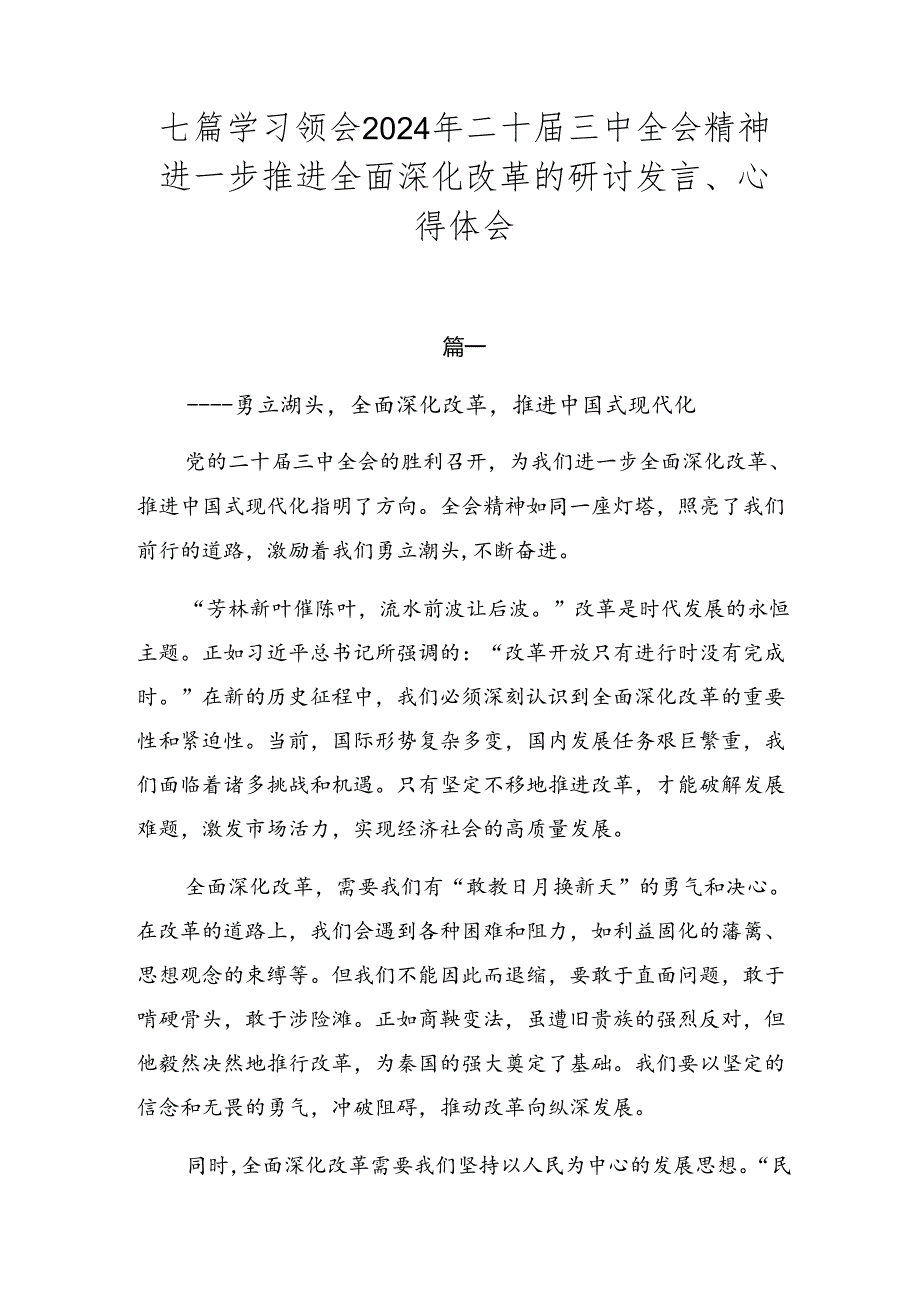 七篇学习领会2024年二十届三中全会精神
进一步推进全面深化改革的研讨发言、心
得体会
篇一
----勇立湖头，全面深化改革，推进中国式现代化
党的二十届三中全会的胜利召开，为我们进一步全面深化改革、
推进中国式现代化指明了方向。全会精神如同一座灯塔，照亮了我们
前行的道路，激励着我们勇立潮头,不断奋进。
“芳林新叶催陈叶，流水前波让后波。”改革是时代发展的永恒
主题。正如习近平总书记所强调的：“改革开放只有进行时没有完成
时。”在新的历史征程中，我们必须深刻认识到全面深化改革的重要
性和紧迫性。当前，国际形势复杂多变，国内发展任务艰巨繁重，我
们面临着诸多挑战和机遇。只有坚定不移地推进改革，才能破解发展
难题，激发市场活力，实现经济社会的高质量发展。
全面深化改革，需要我们有“敢教日月换新天”的勇气和决心。
在改革的道路上，我们会遇到各种困难和阻力，如利益固化的藩篱、
思想观念的束缚等。但我们不能因此而退缩，要敢于直面问题，敢于
啃硬骨头，敢于涉险滩。正如商鞅变法，虽遭旧贵族的强烈反对，但
他毅然决然地推行改革，为秦国的强大奠定了基础。我们要以坚定的
信念和无畏的勇气，冲破阻碍，推动改革向纵深发展。
同时,全面深化改革需要我们坚持以人民为中心的发展思想。“民